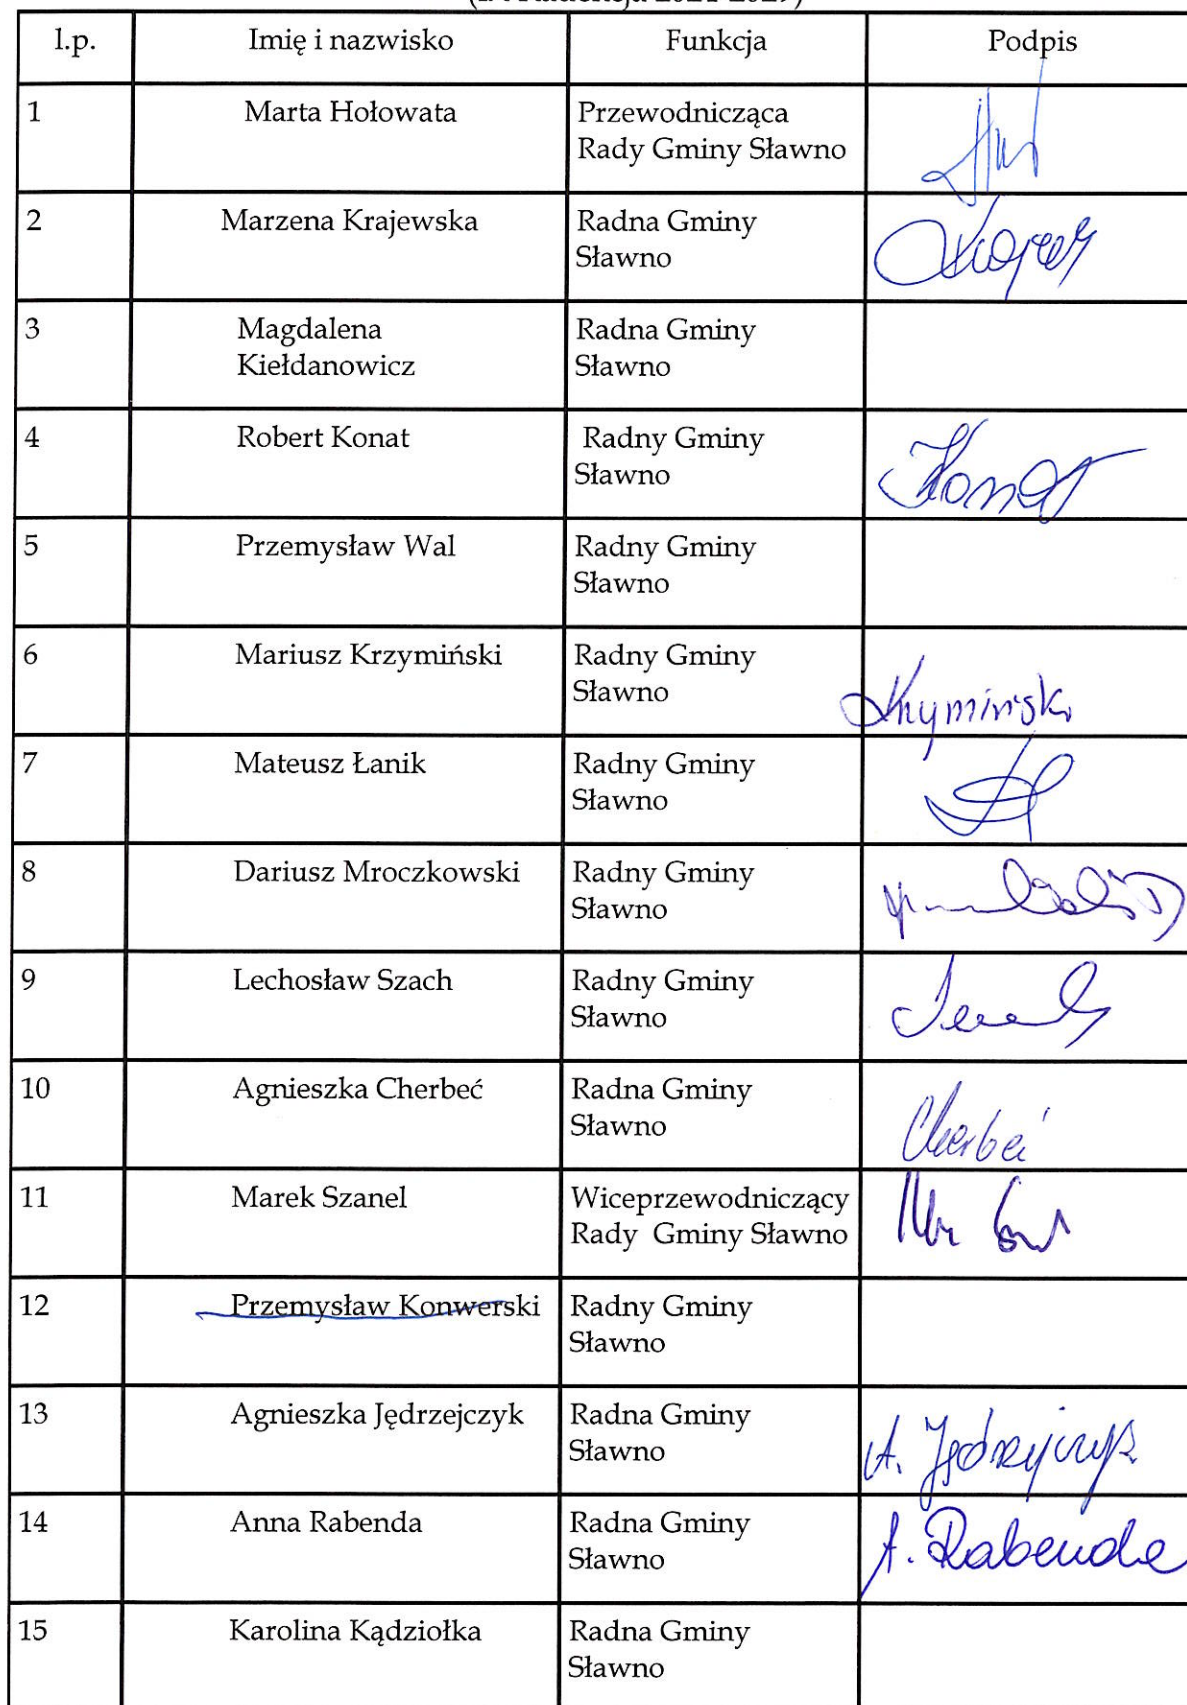 l.p. Imię i nazwisko Funkcja Podpis
1 Marta Hołowata Przewodnicząca
Rady Gminy Sławno
2 Marzena Krajewska Radna Gminy
Sławno
3 Magdalena Radna Gminy
Kiełdanowicz Sławno
4 Robert Konat Radny Gminy
Sławno Konat
5 Przemysław Wal Radny Gminy
Sławno
6 Mariusz Krzymiński Radny Gminy
Sławno
7 Mateusz Łanik Radny Gminy
Sławno
8 Dariusz Mroczkowski Radny Gminy
Sławno
9 Lechosław Szach Radny Gminy
Sławno
10 Agnieszka Cherbeć Radna Gminy
Sławno Cherbeć
11 Marek Szanel Wiceprzewodniczący
Rady Gminy Sławno
12 Przemysław Konwerski Radny Gminy
Sławno
13 Agnieszka Jędrzejczyk Radna Gminy
Sławno A. Jędrzejczyk
14 Anna Rabenda Radna Gminy
Sławno A. Rabenda
15 Karolina Kądziołka Radna Gminy
Sławno